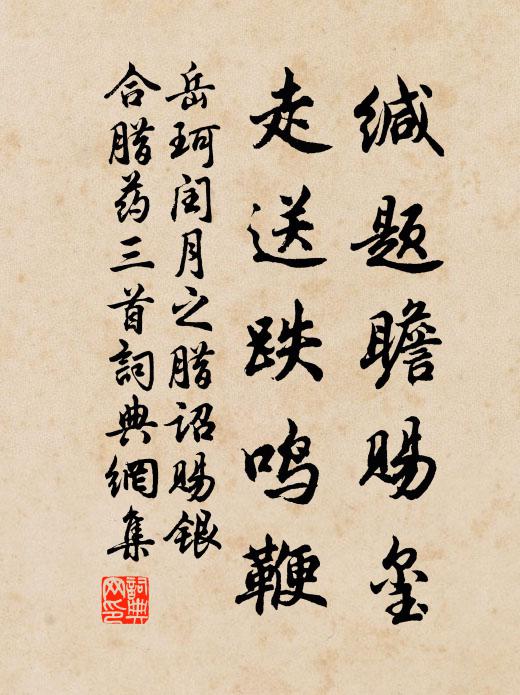 缄题瞻赐玺
走送跌鸣鞭
岳珂闰月之腊诏赐银
合腊药三首詞典網集
詞典
网印